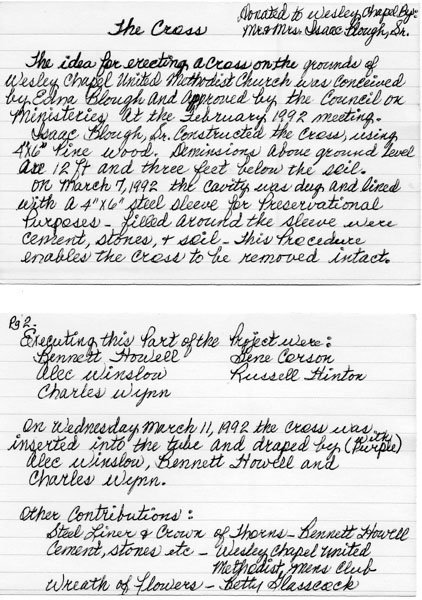 Donated to Wesley Chapel By:
The Cross Mr & Mrs. Isaac Blough, Sr.
The idea for erecting a cross on the grounds of
Wesley Chapel United Methodist Church was conceived
by Edna Blough and Approved by the Council on
Ministeries at the February 1992 meeting.
Isaac Blough, Sr. Constructed the cross, using
4"x6" Pine wood. Deminsions above ground level
are 12 ft and three feet below the soil.
On March 7, 1992 the cavity was dug and lined
with a 4"x6" steel sleeve for Preservational
Purposes - filled around the sleeve were
cement, stones, & soil - This Procedure
enables the cross to be removed intact.
Pg 2.
Executing this Part of the Project were:
Bennett Howell Gene Corson
Alec Winslow Russell Hinton
Charles Wynn
On Wednesday March 11, 1992 the cross was
inserted into the tube and draped by (with Purple)
Alec Winslow, Bennett Howell and
Charles Wynn.
Other Contributions:
Steel Liner & Crown of Thorns - Bennett Howell
Cement, stones etc - Wesley Chapel United
Methodist Mens Club
Wreath of Flowers - Betty Glasscock